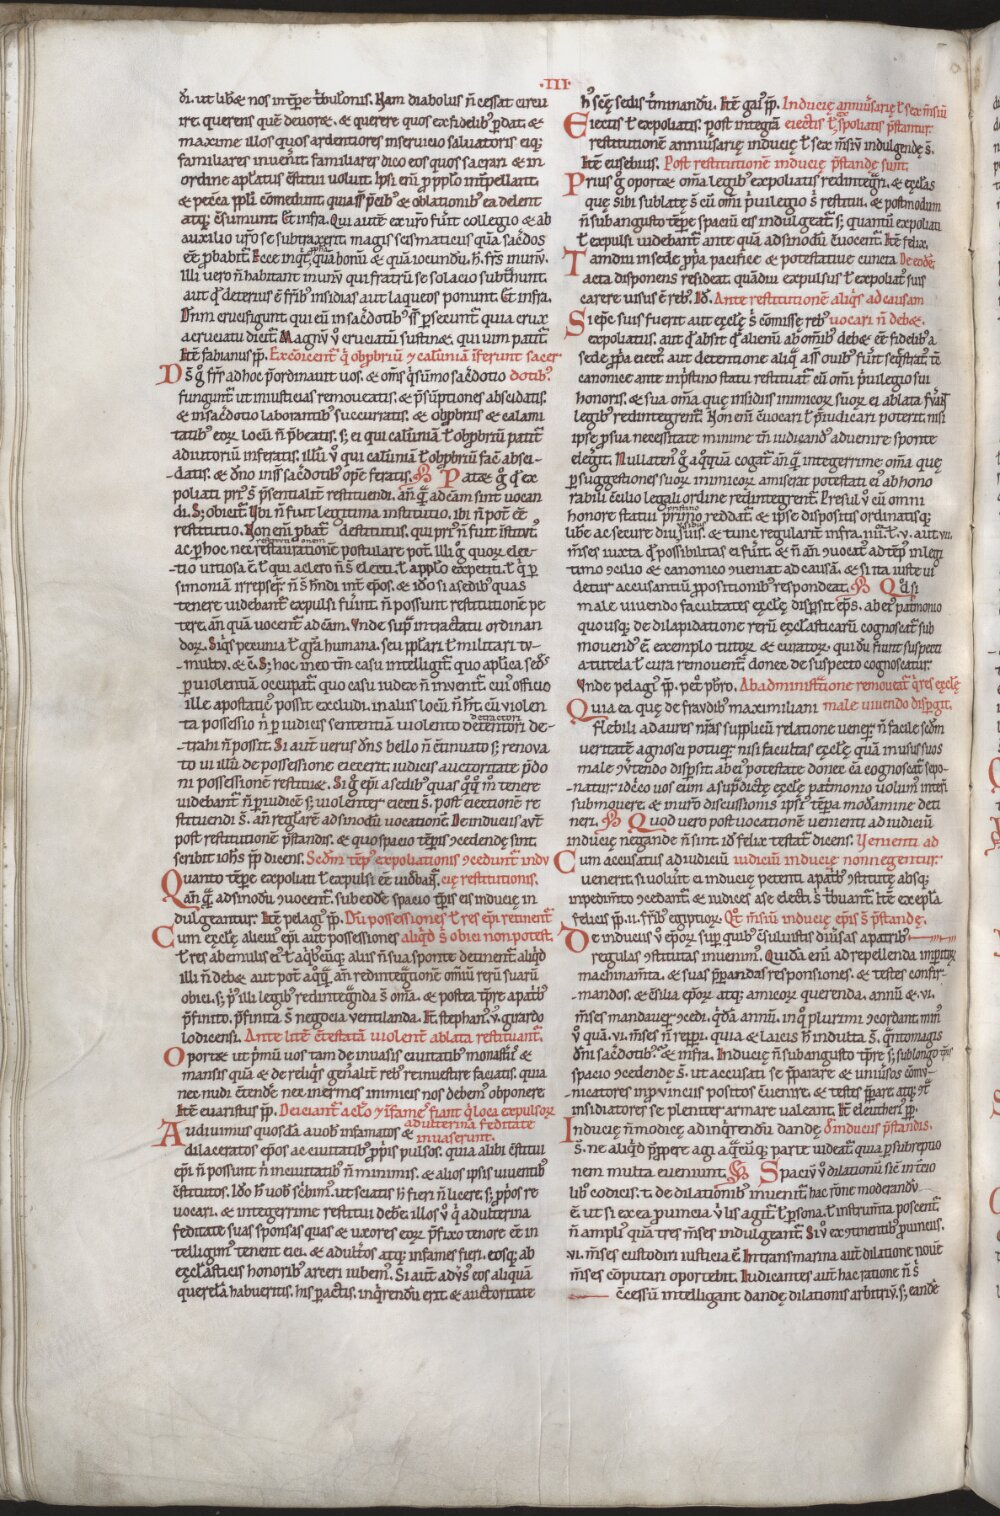 ·III·
d̄i. ut libet nos intp̄re t̄bulonis. Nam diabolus n̄ cessat circu
ire. querens quē devoret. et querere quos ex fidelib᷒ ꝑdat. et
maxime illos quos ardentiores in servicio salvatoris eiq;
familiares invenit. familiares dico eos quos sacrari et in
ordine apl̄atus c̄stitui voluit. Ipsi eni ꝓ pplo int̄pellant.
et peccā ppl̄i comedunt.
atq; c̄sumunt. Et infra. Qui autē ex vr̄o fuīt collegio et ab
auxilio vr̄o se subtraxerit. magis scismaticus quā sac̄dos
eē ꝓbabit. Ecce inqt̄. quā bonū et quā iocundū. h̄. fr̄s in unū.
illi vero n̄ habitant in unū qui fratrū se solacio subt̄hunt.
aut qd̄ deterius ē fr̄ib᷒ insidias aut laqueos ponunt. Et infra.
Dn̄m crucifigunt. qui eū in sac̄dotib᷒ suis ꝑsecunt̄. quia crux
a cruciatu dicit̄. Magnū v̊ cruciatū sustinet. qui vim patit̄.
Itē fabianus pp̄. Excōicent̄ q̇ obprobriū ⁊ calūniā īferunt sacer
D s̄ g̊ fr̄r ad hoc p̄ordinavit vos. et om̄s q̇ sūmo sac̄dotio dotib᷒.
fungunt̄ ut iniusticias removeatis. et p̄sūptiones abscidatis.
et in sac̄dotio laborantib᷒ succuratis. et obprobriis et calami
tatib᷒ eoꝝ locū n̄ p̄beatis. s; ei qui calūniā ł obprobriū patit̄
adiutoriū inferatis. illū v̊ qui calūniā ł obprobriū facit absci-
datis. et dn̄o in suis sac̄dotib᷒ opē feratis. Patet g̊ qd̄ ex
poliati pri᷒ s̄ p̄sentialit̄ restituendi. an̄ q̄ ad cām sint vocan
di. S; obicit̄. Ubi n̄ fuit legitima institutio. ibi n̄ pot̄ eē
restitutio. Non eni ꝓbat̄ destitutus. qui pri᷒ n̄ fuit īstitut᷒.
ac ꝑ hoc nec restaurationē postulare pot̄. Illi g̊ quoꝝ elec-
tio vitiosa ē. ł qui a clero n̄ s̄ electi. ł a pplo expetiti. ł q̇ ꝑ
simoniā irrepseꝝ. n̄ s̄ h̄ndi int̄ ep̄os. et idō si a sedib᷒ quas
tenere videbant̄ expulsi fuīnt. n̄ possunt restitutionē pe
tere. an̄ quā vocent̄ ad cām. Unde supͣ in tractatu ordinan
doꝝ. Siq̇s pecunia ł gr̄a humana. seu ppl̄ari ł militari tu-
multu. et c̄. S; hoc in eo tn̄ casu intelligit̄. quo aplīca sed᷒
ꝑ violentiā occupat̄. quo casu iudex n̄ invenit̄. cui᷒ officio
ille apostatic᷒ possit excludi. In aliis locū n̄ ht̄. cū violen
ta possessio n̄ ꝑ iudicis sententiā violento detentori de-
trahi n̄ possit. Si aut̄ verus dn̄s bello n̄ c̄tinuato s; renova
to vi illū de possessione eiecerit. iudicis auctoritate p̄do
ni possessionē restituet. Si g̊ ep̄i a sedib᷒ quas qͦq̇ m̊ tenere
videbant̄ n̄ ꝑ iudicē s; violenter eiecti s̄. post eiectionē re
stituendi s̄. an̄ reglarē ad sinodū vocationē. De induciis aut̄
post restitutionē p̄standis. et quo spacio tēꝑis ꝯcedende sint.
scribit ioh̄s pp̄ dicens. Sed̄m tēp᷒ expoliationis ꝯcedunt̄ indu
Q uanto tēꝑe expoliati ł expulsi eē vid̄bant̄. cię restitutionis.
an̄ q̄ ad sinodū ꝯvocent̄. sub eodē spacio tꝑis eis inducię in
dulgeantur. Itē pelagi᷒ pp̄. Dū possessiones ł res ep̄i retinent̄
C um eccłę alicui᷒ ep̄i aut possessiones aliqd̄ s̄ obici non potest.
ł res ab emulis ei᷒ ł aq̇b᷒cūq; aliis n̄ sua sponte detinent̄. aliqd̄
illi n̄ debet. aut pot̄ aq̊q̄ an̄ redintegͣtionē om̄iū rerū suarū
obici. s; p᷒ illi legib᷒ redintegͣnda s̄ om̄a. et postea tp̄re a patrib᷒
p̄finito. p̄finita s̄ negocia ventilanda. It̄ stephan᷒. v. girardo
lodicensi. Ante litē c̄testatā violent̄ ablata restituant̄.
O portet ut pͥmū vos tam de invasis civitatib᷒ monast̄iis et
mansis quā et de reliqͥs gen̄alit̄ reb᷒ reinvestire faciatis. quia
nec nudi c̄tendē nec inermes inimicis nos debem᷒ obponere
Itē evaristus pp̄. Deiciant̄ a cl̄o ⁊ īfames fiant q̇ loca expulsoꝝ
A udivimus quosdā. a vob̄ infamatos et adulterina feditate
dilaceratos ep̄os ac civitatib᷒ ꝓpriis pulsos. quia alibi c̄stitui invaserunt.
ep̄i n̄ possunt n̄ in civitatib᷒ n̄ minimis. et alios ipsis viventib᷒
c̄stitutos. Idō h̄ vob̄ sc̄bim᷒. ut sciatis h̄ fieri n̄ licere. s; ꝓprios re
vocari. et integerrime restitui debere. illos v̊ q̇ adulterina
feditate suas sponsas quas et uxores eoꝝ p̄fixo tenore eē in
telligim᷒ tenent eici. et adultos atq; infames fieri. eosq; ab
eccłasticis honorib᷒ arceri iubem᷒. Si aut̄ adv̄s᷒ eos aliquā
querelā habueritis. his ꝑactis. inqͥrendū erit. et auctoritate
h᷒ scę sedis t̄minandū. Itē gai᷒ pp̄. Inducię anniv̄sarię ł sex m̄siū
E iectis ł expoliatis. post integrā eiectis ł spoliatis p̄stantur.
restitutionē anniv̄sarię inducię ł sex m̄siū indulgendę s̄.
Itē eusebius. Post restitutionē inducię p̄standę sunt.
P rius g̊ oportet om̄a legib᷒ expoliatis redintegͣri. et eccłas
que s̄ibi sublatę s̄ cū om̄i pͥvilegio s̄ restitui. et postmodum
n̄ sub angusto tēꝑe spaciū eis indulgeat̄ s; quantū expoliati
ł expulsi videbant̄ ante quā ad sinodū c̄vocent̄. Itē felix.
T amdiu in sede ꝓpria pacifice et potestative cuncta De eodē.
acta disponens resideat. quādiu expulsus ł expoliat᷒ suis
carere visus ē reb᷒. Id̄. Ante restitutionē aliqͥs ad causam
S i ep̄c suis fuerit aut eccłę s̄ comissę reb᷒ vocari n̄ debet.
expoliatus. aut qd̄ absit qd̄ alienū ab om̄ib᷒ debet eē fidelib᷒ a
sede ꝓpria eiect᷒ aut detentione aliq̄ a suis ovib᷒ fuīt seqͥstrat᷒. tē
canonice ante in pͥstino statu restituat̄ cū om̄i pͥvilegio sui
honoris. et sua om̄a que insidiis inimicoꝝ suoꝝ ei ablata fuīt
legib᷒ redintegrent̄. Non eni c̄vocari ł p̄iudicari poterit. nisi
ipse ꝓ sua necessitate minime tn̄ iudicand᷒ advenire sponte
elegit. Nullaten᷒ g̊ aq̊quā cogat̄ an̄ q̄ integerrime om̄a quę
ꝑ suggestiones suoꝝ inimicoꝝ amiserat potestati ei᷒ ab hono
rabili c̄cilio legali ordine redintegrent̄. Presul v̊ cū omni
honore statui primo reddat̄. et ipse dispositis ordinatisq;
libēe ac secure diu suis. et tunc regularit̄ infra. iiii. ł. v. aut vii.
m̄ses iuxta qd̄ possibilitas ei᷒ fuīt. et n̄ an̄ ꝯvocat᷒ ad tēp᷒ in legi
timo ꝯcilio et canonico ꝯveniat ad causā. et si ita iuste vi
detur accusantiū ꝓpositionib᷒ respondeat. Qd̄ si
male vivendo facultates eccłę disꝑsit ep̄s. ab ei᷒ patͥmonio
quousq; de dilapidatione rerū eccłasticarū cognoscat̄ sub
movend᷒ ē exemplo tutoꝝ et curatoꝝ. qui dū fiunt suspecti
a tutela ł cura removent̄ donec de suspecto cognoscatur.
Unde pelagi᷒ pp̄. petͦ pb̄ro. Ab administͣtione removeat̄ q̇ res eccłę
Q uia ea que de fraudib᷒ maximiliani male vivendo disꝑgit.
flebili ad aures nr̄as supplicū relatione veneꝝ. n̄ facile sed̄m
veritatē agnosci potueꝝ. nisi facultas eccłę quā in usus suos
male ꝯvertendo disꝑsit. ab ei᷒ potestate donec cā cognoscat̄ sepo-
natur. idcͦco vos eum a supͣdictę eccłę patͥmonio volum᷒ interi
submovere. et in uro discussionis ipsi᷒ tēꝑa modamine deti
neri. Quod vero post vocationē venienti ad iudiciū
inducię negandę n̄ sint. id̄ felix testat̄ dicens. Venienti ad
C um accusatus ad iudiciū iudiciū inducię non negentur.
venerit. si voluīt ei inducię petenti a patrib᷒ ꝯstitutę absq;
inpedimto ꝯcedant̄. et iudices a se electi s̄ t̄buant̄. Itē ex epl̄a
felicis pp̄. ii. fr̄ib᷒ egiptioꝝ. Qͦt m̄siū inducię ep̄is s̄ p̄standę.
D e induciis v̊ ep̄oꝝ suꝑ quib᷒ c̄suluistis div̄sas a patrib᷒
regulas ꝯstitutas invenim᷒. Quidā eni ad repellenda inpͥtoꝝ
machinam̄ta. et suas p̄parandas responsiones. et testes confir-
mandos. et c̄silia ep̄oꝝ atq; amicoꝝ querenda. annū et. vi.
m̄ses mandaver̄ ꝯcedi. qͥdā annū. in q̊ plurimi ꝯcordant. min᷒
v̊ quā. vi. m̄ses n̄ reppi. quia et laicis h̄ indulta s̄. q̄nto magis
dn̄i sac̄dotib᷒. et infra. Inducię n̄ sub angusto tp̄re s; sub longo tꝑis
spacio ꝯcedendę s̄. ut accusati se p̄parare et univ̄sos cōmu-
nicatores in ꝓvinciis positos c̄venire. et testes p̄parare. atq; ꝯtͣ
insidiatores se pleniter armare valeant. It̄ eleutheri᷒ pp̄.
I nducię n̄ modicę ad inqͥrendū dandę s̄. De induciis p̄standis.
s̄. ne aliqd̄ p̄propere agi aq̊cūq; parte videat̄. quia ꝑ subreptio
nem multa eveniunt. Spaciū v̊ dilationū sic̄ in tercio
lib᷒ codicis. t. de dilationib᷒ invenit̄. hac rōne moderandū
ē. ut si ex ea ꝓvincia v̊ lis agit̄. ł ꝑsona. ł instrum̄ta poscent̄.
n̄ ampli᷒ quā tres m̄ses indulgeant̄. Si v̊ ex ꝯtinentib᷒ ꝓvinciis.
vi. m̄ses custodiri iusticia ē. In transmarina aut̄ dilatione nove
m̄ses cōputari oportebit. Iudicantes aut̄ hac ratione n̄ s̄
c̄cessū intelligant dandę dilationis arbitriū. s; eandē